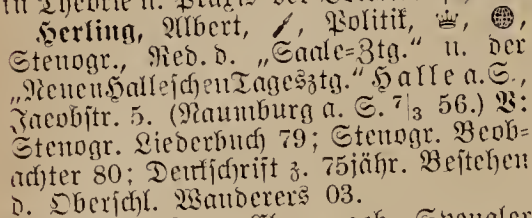 in Theorie u. Praxis der
Herling, Albert, Politik,
Stenogr., Red. d. „Saale=Ztg.“ u. der
„Neuen Halleschen Tagesztg.“ Halle a.S.,
Jacobstr. 5. (Naumburg a. S. 7|3 56.) V:
Stenogr. Liederbuch 79; Stenogr. Beob=
achter 80; Denkschrift z. 75jähr. Bestehen
d. Oberschl. Wanderers 03.